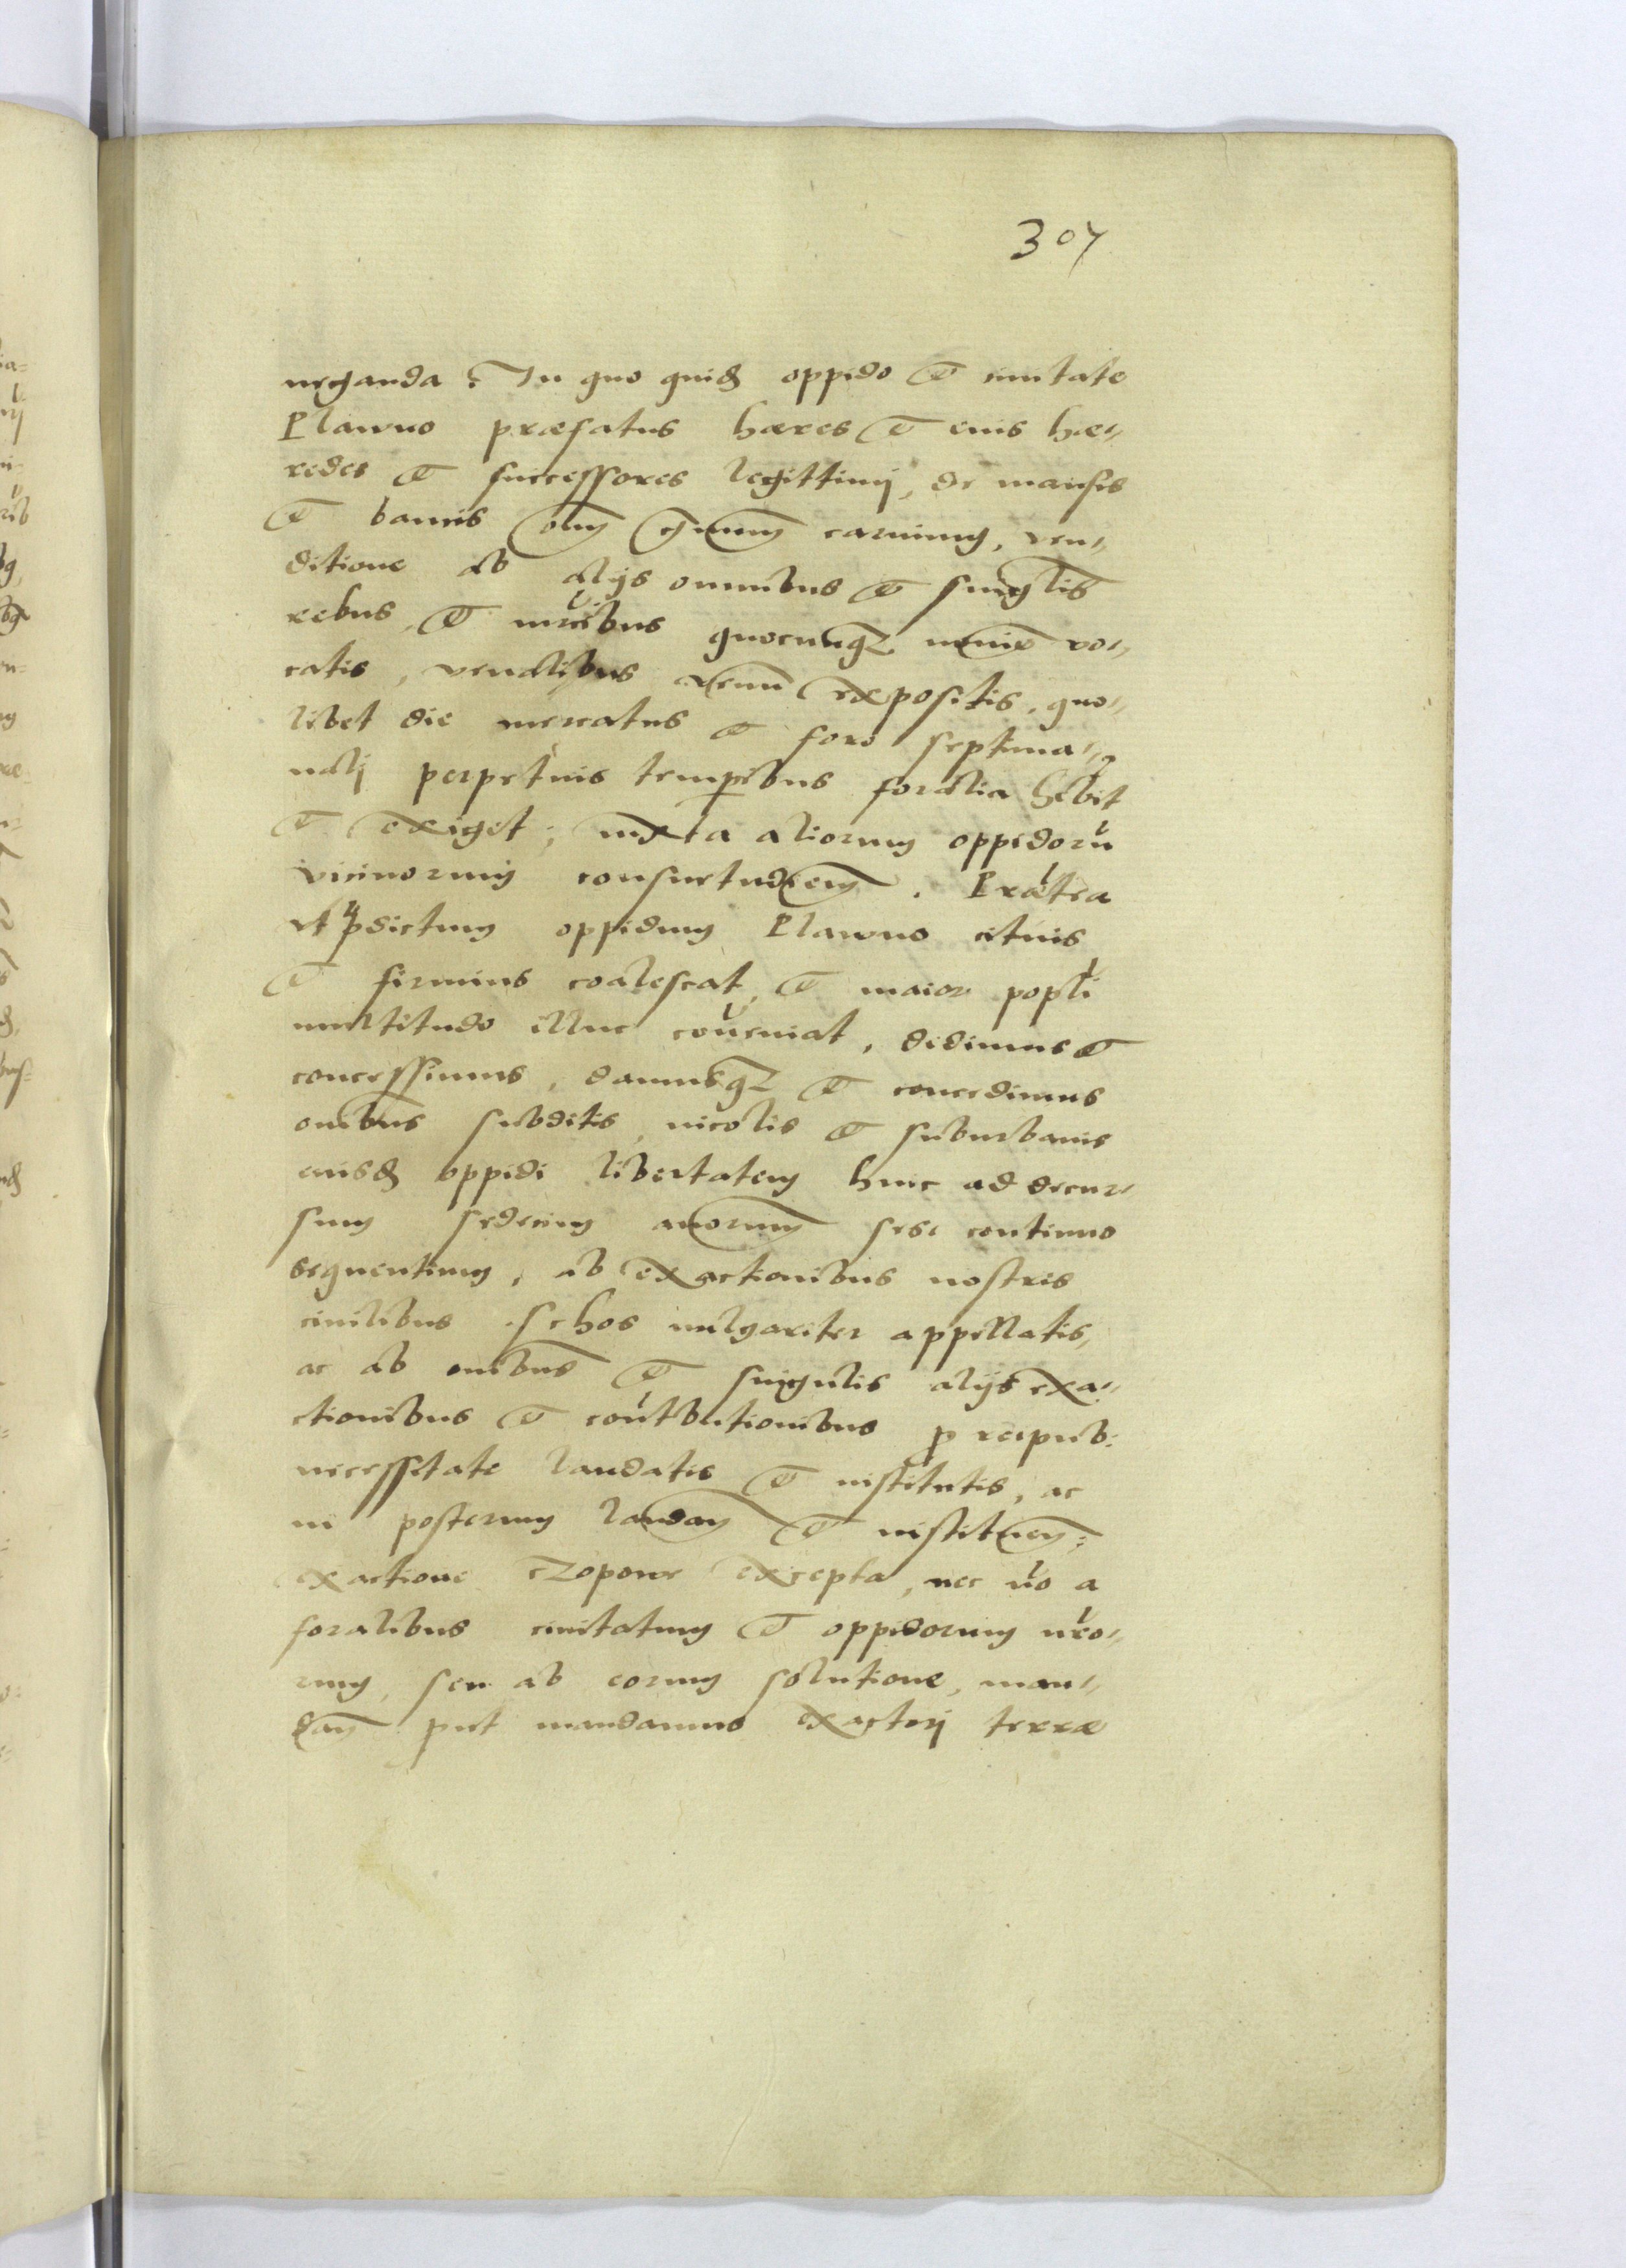 307
neganda. In quo quidem oppido et ciuitate
Plawno præfatus hæres et eius hæ-
redes et successores legittimj, de mansis
et bancis omnium generum carnium, ven-
ditione ab alijs omnibus et singulis
rebus, et mercibus quocunque nomine vo-
catis, venalibus venum expositis, quo-
libet die mercatus et foro septima-
nalj perpetuis temporibus foralia habebit
et exiget, iuxta aliorum oppidorum
vicinorum consuetudinem. Præterea
vt prædictum oppidum Plawno citius
et firmius coalescat, et maior populi
multitudo illuc conueniat, dedimus et
concessimus, damusque et concedimus
omnibus subditis, incolis et suburbanis
eiusdem oppidi libertatem hinc ad decur-
sum sedecim annorum sese continuo
sequentium, ab exactionibus nostris
ciuilibus schos vulgariter appellatis,
ac ab omnibus et singulis alijs exa-
ctionibus et contributionibus pro reipub:
necessitate laudatis et institutis, ac
in posterum laudandis et instituendis:
exactione czopowe excepta, nec vero a
foralibus ciuitatum et oppidorum nostro-
rum, seu ab eorum solutione, man-
dandum prout mandamus exactorj terræ